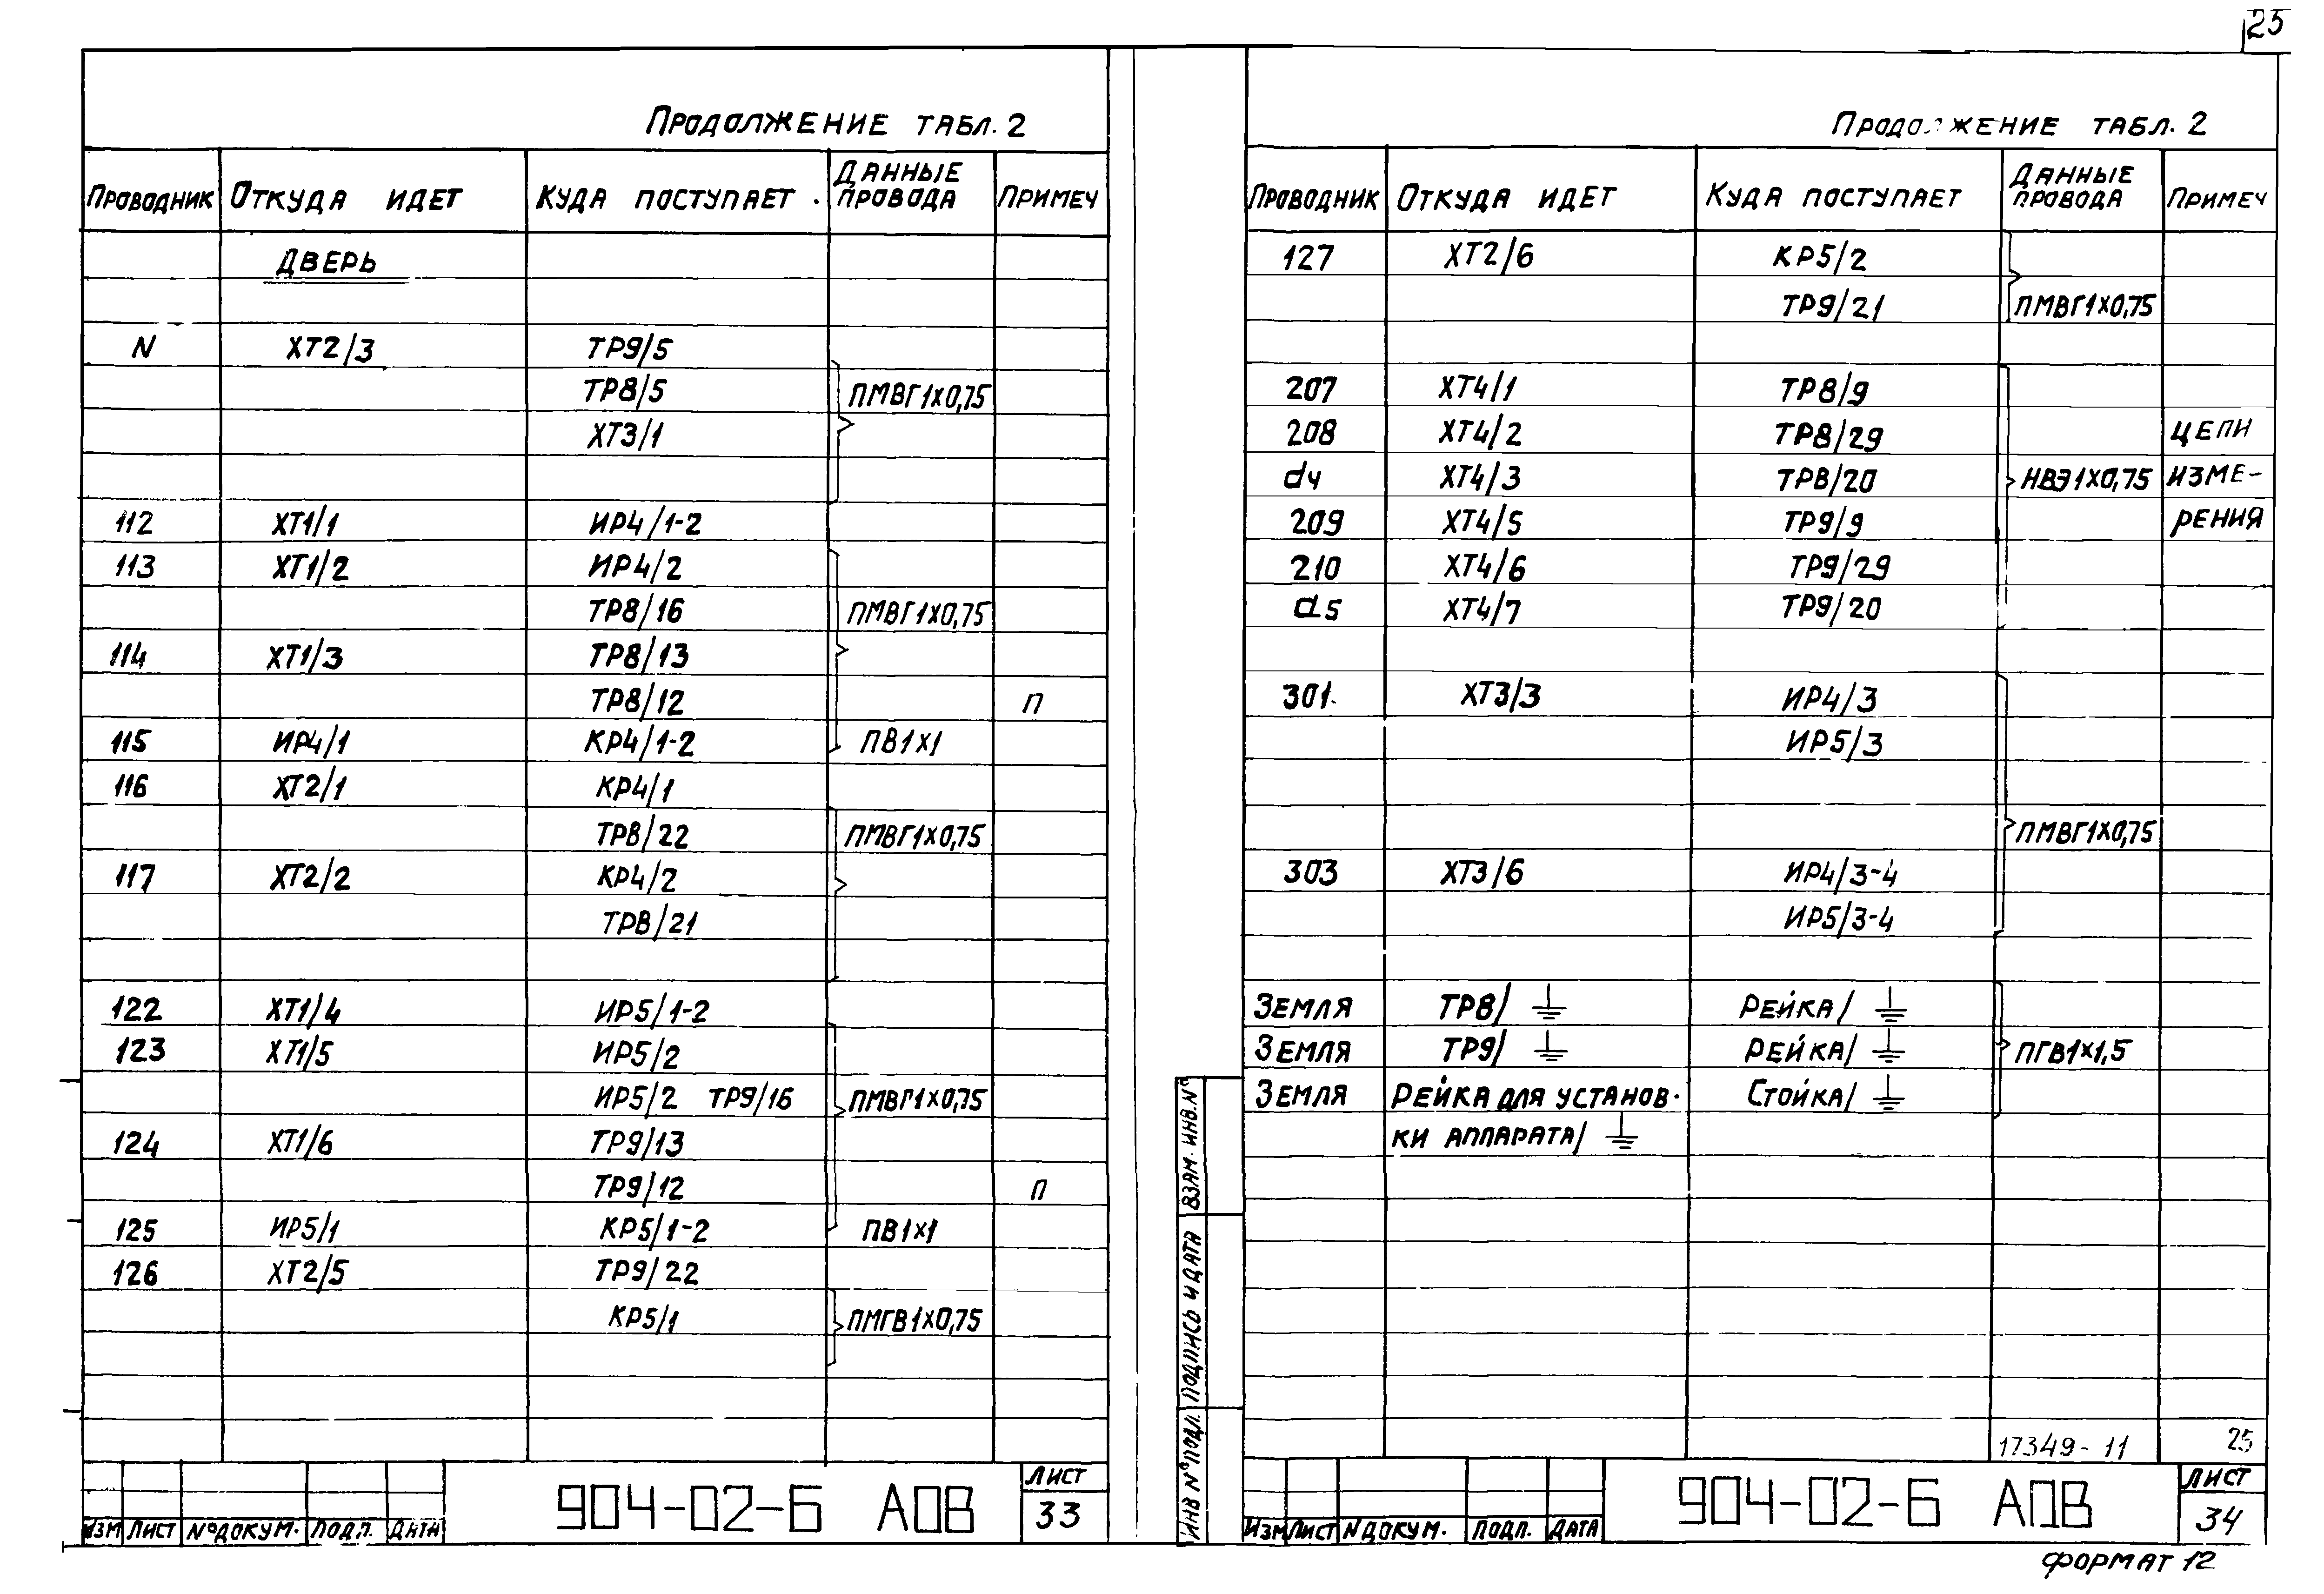 25
Продолжение табл. 2
Проводник Откуда идет Куда поступает Данные провода Примеч
Дверь
N ХТ2/3 ТР9/5
ТР8/5 ПМВГ1х0,75
ХТ3/1
112 ХТ1/1 ИР4/1-2
113 ХТ1/2 ИР4/2
ТР8/16 ПМВГ1х0,75
114 ХТ1/3 ТР8/13
ТР8/12 П
115 ИР4/1 КР4/1-2 ПВ1х1
116 ХТ2/1 КР4/1
ТР8/22 ПМВГ1х0,75
117 ХТ2/2 КР4/2
ТР8/21
122 ХТ1/4 ИР5/1-2
123 ХТ1/5 ИР5/2
ИР5/2 ТР9/16 ПМВГ1х0,75
124 ХТ1/6 ТР9/13
ТР9/12 П
125 ИР5/1 КР5/1-2 ПВ1х1
126 ХТ2/5 ТР9/22
КР5/1 ПМГВ1х0,75
Изм Лист №докум. Подп. Дата
904-02-6 АОВ
Лист
33
Продолжение табл. 2
Проводник Откуда идет Куда поступает Данные провода Примеч
127 ХТ2/6 КР5/2
ТР9/21 ПМВГ1х0,75
207 ХТ4/1 ТР8/9
208 ХТ4/2 ТР8/29 цепи
d4 ХТ4/3 ТР8/20 НВЭ1х0,75 изме-
209 ХТ4/5 ТР9/9 рения
210 ХТ4/6 ТР9/29
d5 ХТ4/7 ТР9/20
301 ХТ3/3 ИР4/3
ИР5/3
ПМВГ1х0,75
303 ХТ3/6 ИР4/3-4
ИР5/3-4
Земля ТР8/⏚ Рейка/⏚
Земля ТР9/⏚ Рейка/⏚ ПГВ1х1,5
Земля Рейка для установ- Стойка/⏚
ки аппарата/⏚
17349-11 25
Взам. инв.№
Подпись и дата
Инв №подл.
Изм Лист №докум. Подп. Дата
904-02-6 АОВ
Лист
34
Формат 12